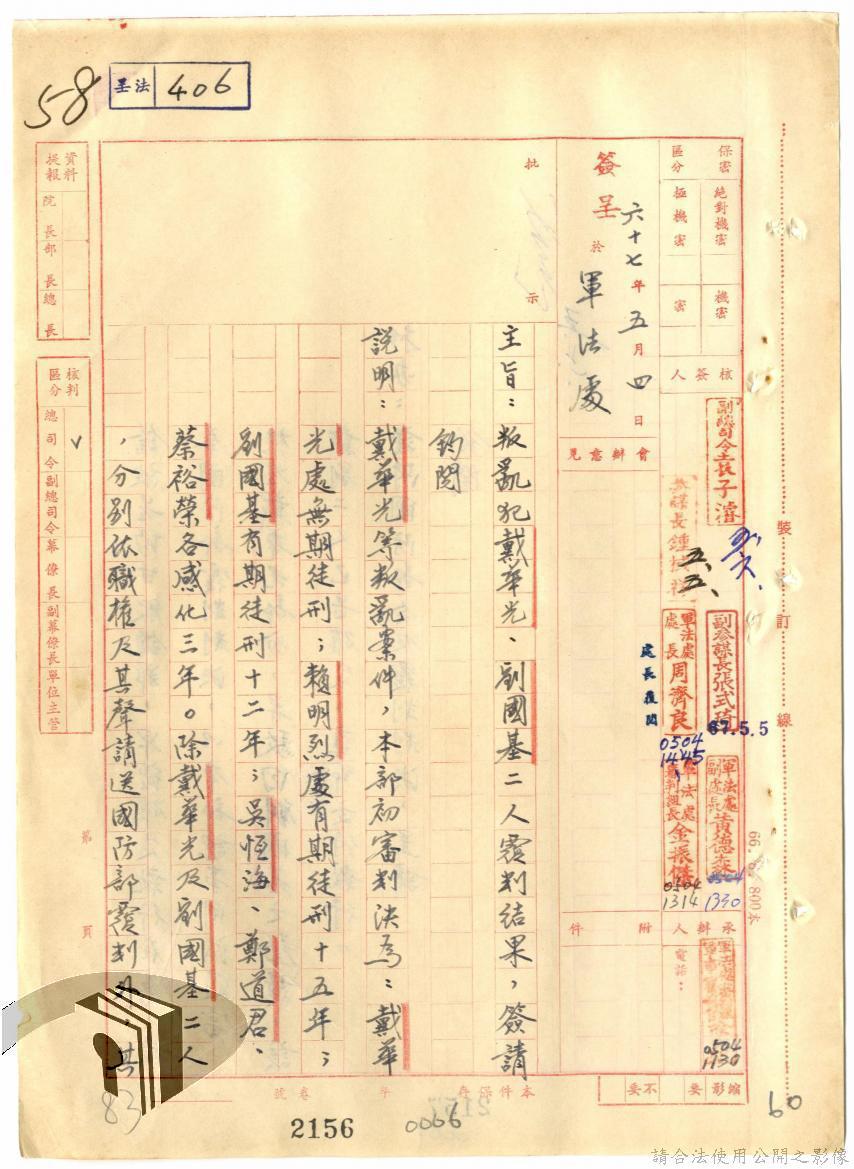 58
呈法 406
保密區分
絕對機密
極機密
機密
密
核簽人
副總司令王長子濬
參謀長鍾
五、五、
副參謀長張式琦
67.5.5
軍法處處長周濟良
0504
1445
處長復閱
軍法處副處長黃德
0504
1330
軍法處審判組長金振傑
0504
1314
承辦人
電話：
0504
1130
縮影
要
不要
簽呈 於 軍法處
六十七年五月四日
會辦意見
附件
批示
主旨：叛亂犯戴華光、劉國基二人覆判結果，簽請
鈞閱
說明：戴華光等叛亂案件，本部初審判決為：戴華
光處無期徒刑；賴明烈處有期徒刑十五年；
劉國基有期徒刑十二年；吳恒海、鄭道君、
蔡裕榮各感化三年。除戴華光及劉國基二人
，分別依職權及其聲請送國防部覆判外，其
資料提報
院長
部長
總長
核判區分
總司令
副總司令
幕僚長
副幕僚長
單位主管
第 頁
本件保存 年 卷號
裝訂線
83
2156
0066
60
請合法使用公開之影像